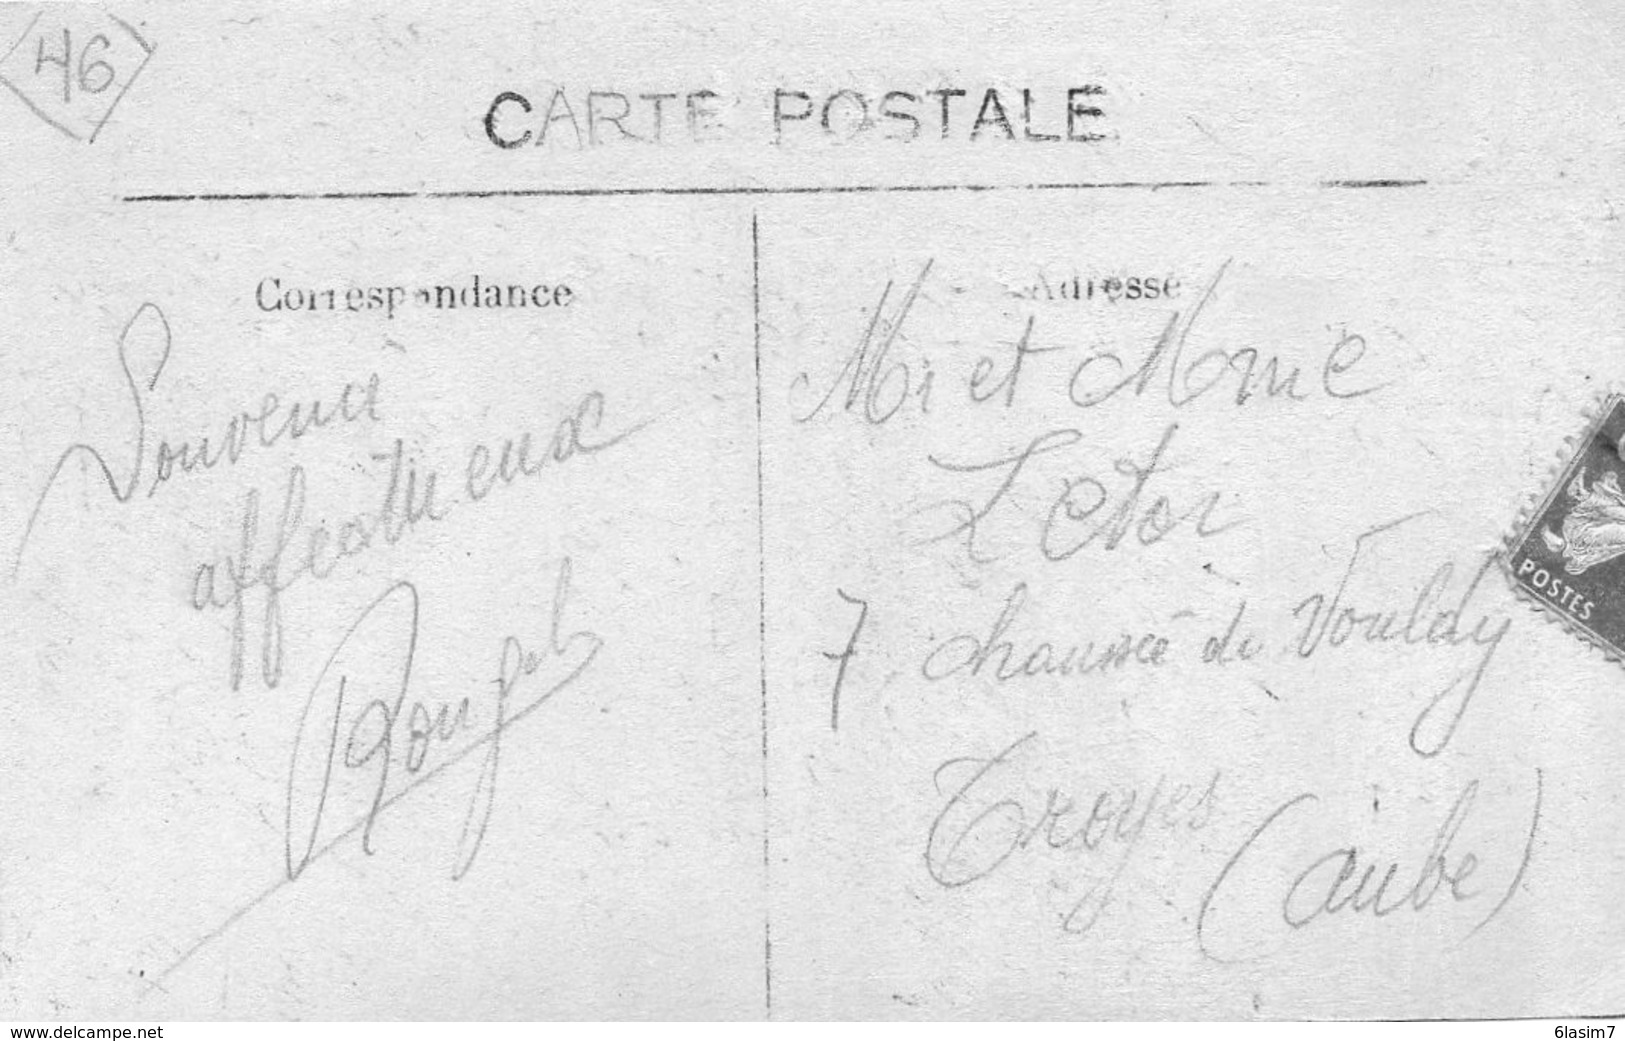 46
CARTE POSTALE
Correspondance
Adresse
Souvenir
affectueux
Mr et Mme
Letor
7 chaussée du Vouldy
Troyes
(Aube)
POSTES
www.delcampe.net
6lasim7